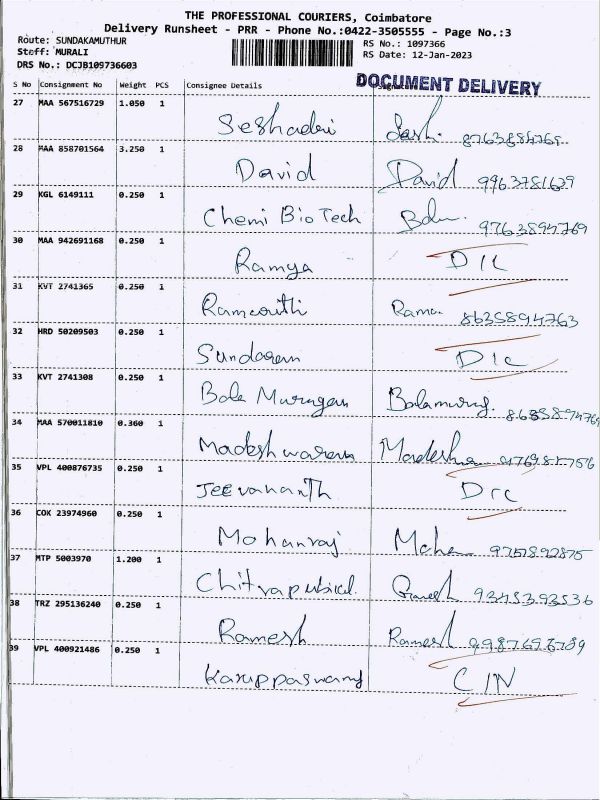 THE PROFESSIONAL COURIERS, Coimbatore
Delivery Runsheet - PRR - Phone No.:0422-3505555 - Page No.:3
Route: SUNDAKAMUTHUR
Staff: MURALI
DRS No.: DCJB109736603
RS No.: 1097366
RS Date: 12-Jan-2023
DOCUMENT DELIVERY
S No Consignment No Weight PCS Consignee Details
27 MAA 567516729 1.050 1
Seshadri Sesh. 8763884769
28 MAA 858701564 3.250 1
David David 9963781629
29 KGL 6149111 0.250 1
Chemi BioTech 9763894769
30 MAA 942691168 0.250 1
Ramya D/L
31 KVT 2741365 0.250 1
Rama. 8635894763
32 HRD 50209503 0.250 1
Sundaram D/C
33 KVT 2741308 0.250 1
Bala Murugan Balamurug.
34 MAA 570011810 0.360 1
Madeshwaran
35 VPL 400876735 0.250 1
Jeevananth
36 COK 23974960 0.250 1
Mohanraj Mohan 9751892875
37 MTP 5003970 1.200 1
Ganesh 9345393536
38 TRZ 295136240 0.250 1
Ramesh Ramesh
39 VPL 400921486 0.250 1
Karuppaswamy C/N